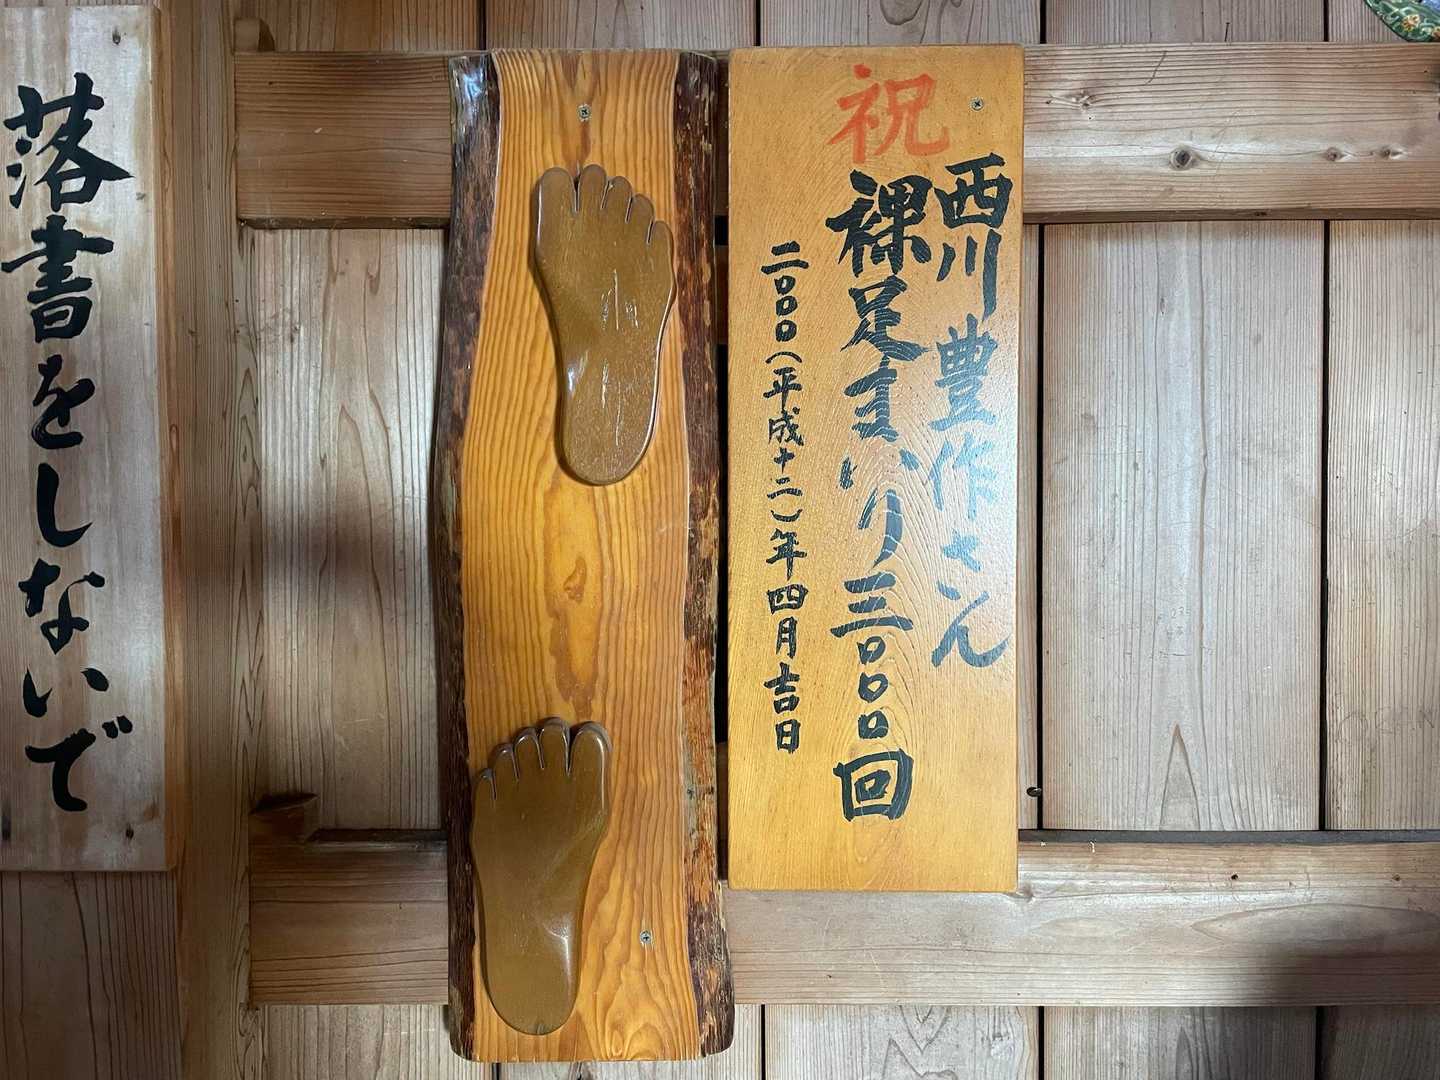 祝
西川豊作さん
裸足まいり三〇〇〇回
二〇〇〇(平成十二)年四月吉日
落書をしないで